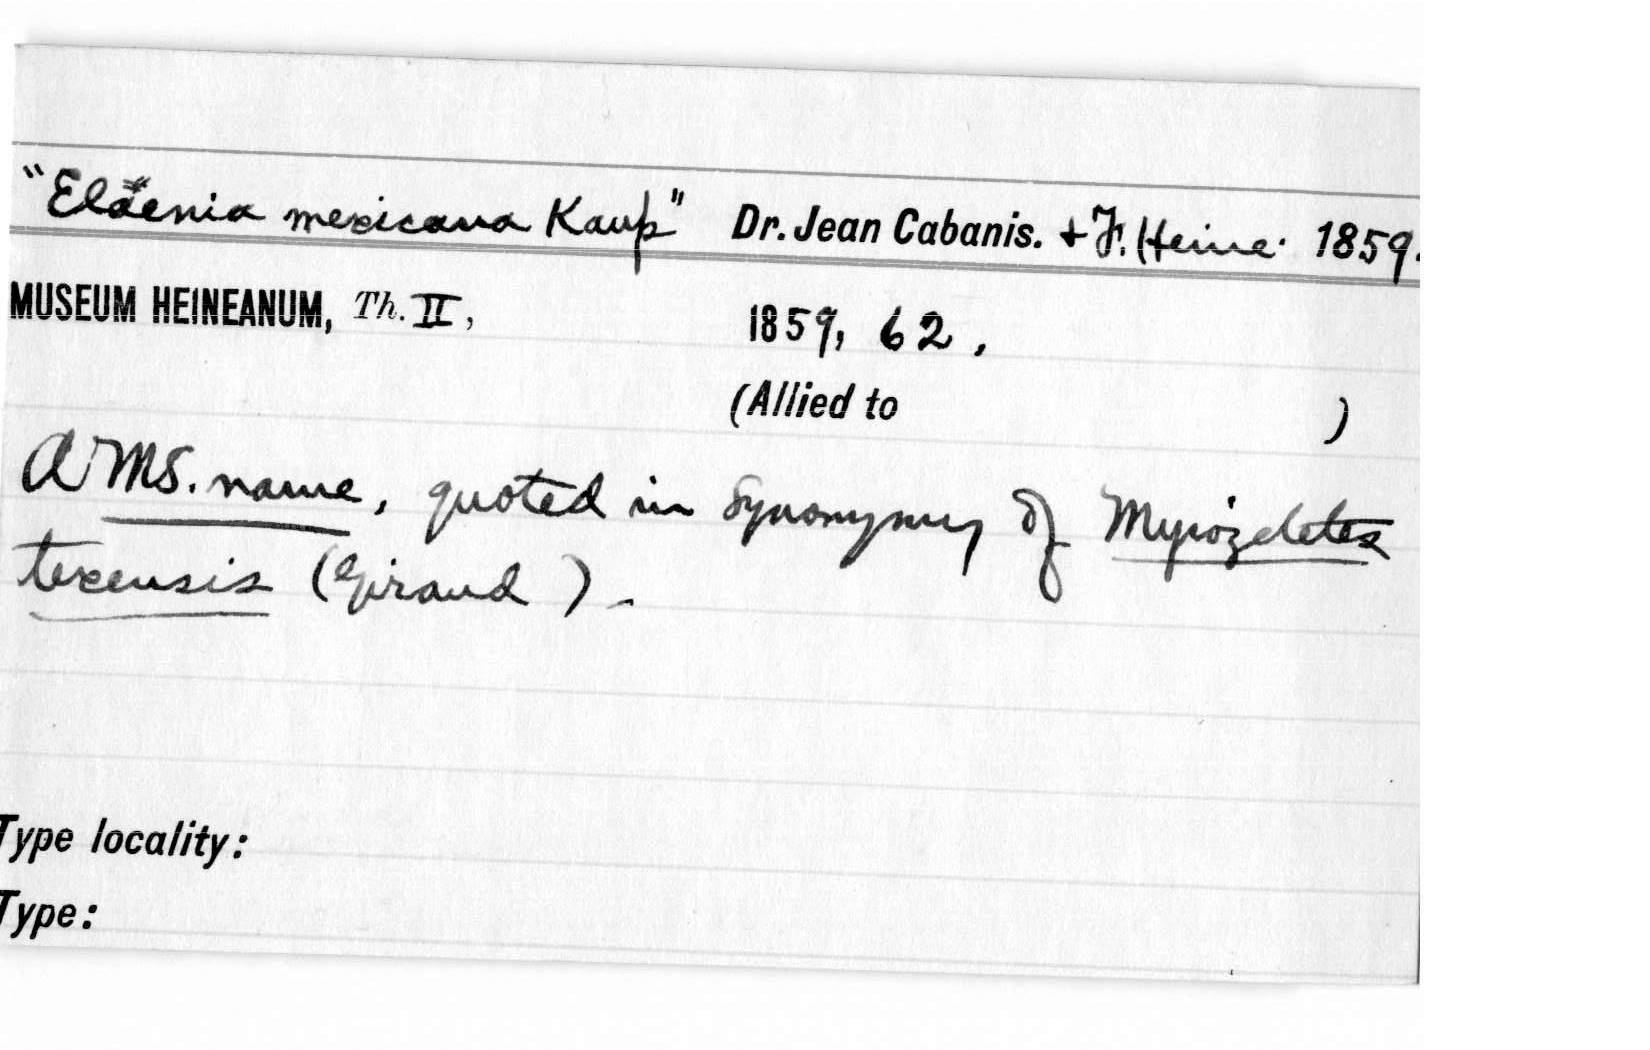 "Elaenia mexicana Kaup" Dr. Jean Cabanis. + F. Heine. 1859.
MUSEUM HEINEANUM, Th. II, 1859, 62,
(Allied to )
A MS. name, quoted in synonymy of Myiozetetes
texensis (Giraud).
Type locality:
Type: